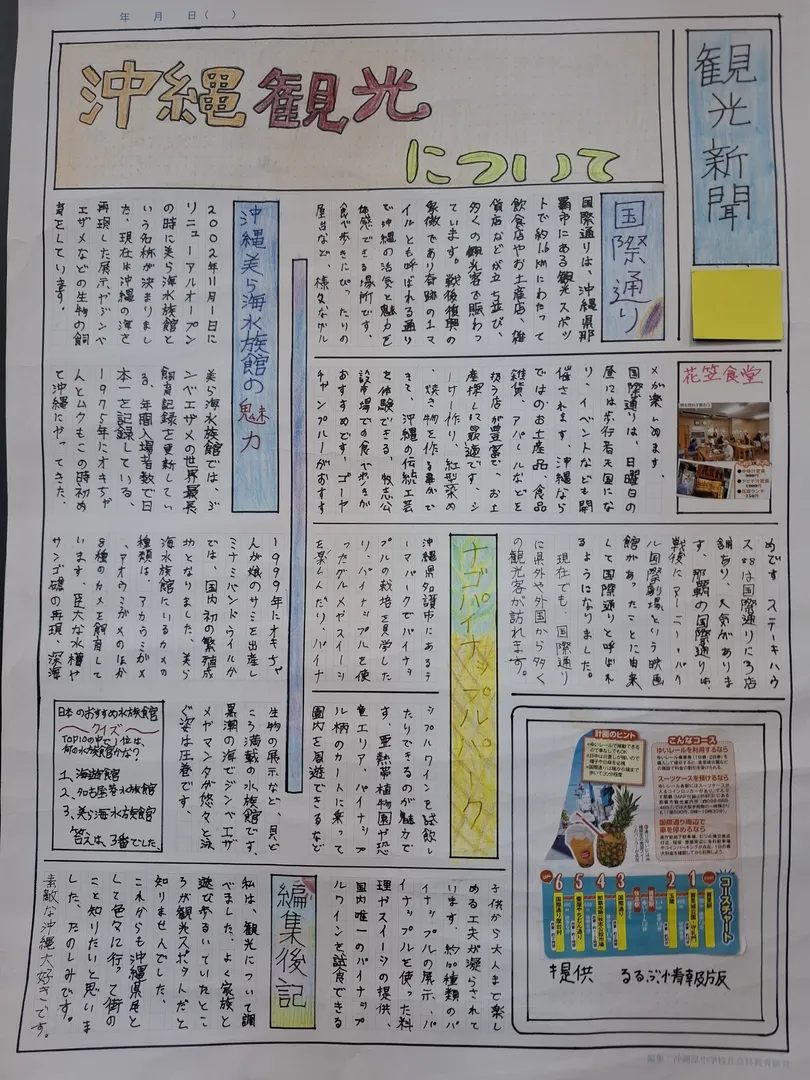 年　月　日（　）
観光新聞
沖縄観光
について
国際通り
国際通りは、沖縄県那
覇市にある観光スポッ
トで約1.6kmにわたって
飲食店やお土産店、雑
貨店などが立ち並び、
多くの観光客で賑わっ
ています。戦後復興の
象徴であり奇跡の1マ
イルとも呼ばれる通り
で沖縄の活気と魅力を
体感できる場所です。
食べ歩きにぴったりの
屋台など、様々なグル
メが楽しめます
国際通りは、日曜日の
昼には歩行者天国にな
り、イベントなども開
催されます。沖縄なら
ではのお土産品、食品
雑貨、アパレルなどを
扱う店が豊富で、お土
産探しに最適です。シ
ーサー作り、紅型染め
、焼き物を作る事がで
きて、沖縄の伝統工芸
を体験できる。牧志公
設市場での食べ歩きが
おすすめです。ゴーヤ
チャンプルーがおすす
めです ステーキハウ
ス88は国際通りに3店
舗あり、人気がありま
す。那覇の国際通りは、
戦後にアーニー・パイ
ル国際劇場という映画
館があったことに由来
して国際通りと呼ばれ
るようになりました。
現在でも、国際通り
に県外や外国から多く
の観光客が訪れます。
花笠食堂
沖縄美ら海水族館の魅力
2002年11月1日に
リニューアルオープン
の時に美ら海水族館と
いう名称が決まりまし
た、現在は沖縄の海を
再現した展示やジンベ
エザメなどの生物の飼
育をしています。
美ら海水族館では、ジ
ンベエザメの世界最長
飼育記録を更新してい
る、年間入場者数で日
本一を記録している、
1975年にオキちゃ
んとムクもこの時初め
て沖縄にやってきた、
1999年にオキちゃ
んが娘のサミを出産し
ミナミバンドウイルカ
では、国内初の繁殖成
功となりました、美ら
海水族館にいるカメの
種類は、アカウミガメ
、アオウミガメのほか
8種のカメを飼育して
います、巨大な水槽や
サンゴ礁の再現、深海
生物の展示など、見ど
ころ満載の水族館です、
黒潮の海でジンベエザ
メやマンタが悠々と泳
ぐ姿は圧巻です。
日本のおすすめ水族館
クイズ
TOP10の中で1位は、
何の水族館かな？
1、海遊館
2、名古屋港水族館
3、美ら海水族館
答えは、3番でした。
ナゴパイナップルパーク
沖縄県名護市にあるテ
ーマパークでパイナッ
プルの栽培を見学した
り、パイナップルを使
ったグルメやスイーツ
を楽しんだり、パイナ
ップルワインを試飲し
たりできるのが魅力で
す、亜熱帯植物園や恐
竜エリア パイナップ
ル柄のカートに乗って
園内を周遊できるなど
子供から大人まで楽し
める工夫が凝らされて
います、約100種類のパ
イナップルの展示、パ
イナップルを使った料
理やスイーツの提供、
国内唯一のパイナップ
ルワインを試食できる
計画のヒント
こんなコース
ゆいレールを利用するなら
スーツケースを預けるなら
国際通り周辺で
車を停めるなら
コースチャート
1
2
3
4
5
6
提供　るるぶ情報版
編集後記
私は、観光について調
べました、よく家族と
遊び歩るいていたとこ
ろが観光スポットだと
知りませんでした、
これからも沖縄県民と
して色々に行って街の
こと知りたいと思いま
した、たのしみです。
素敵な沖縄大好きです。